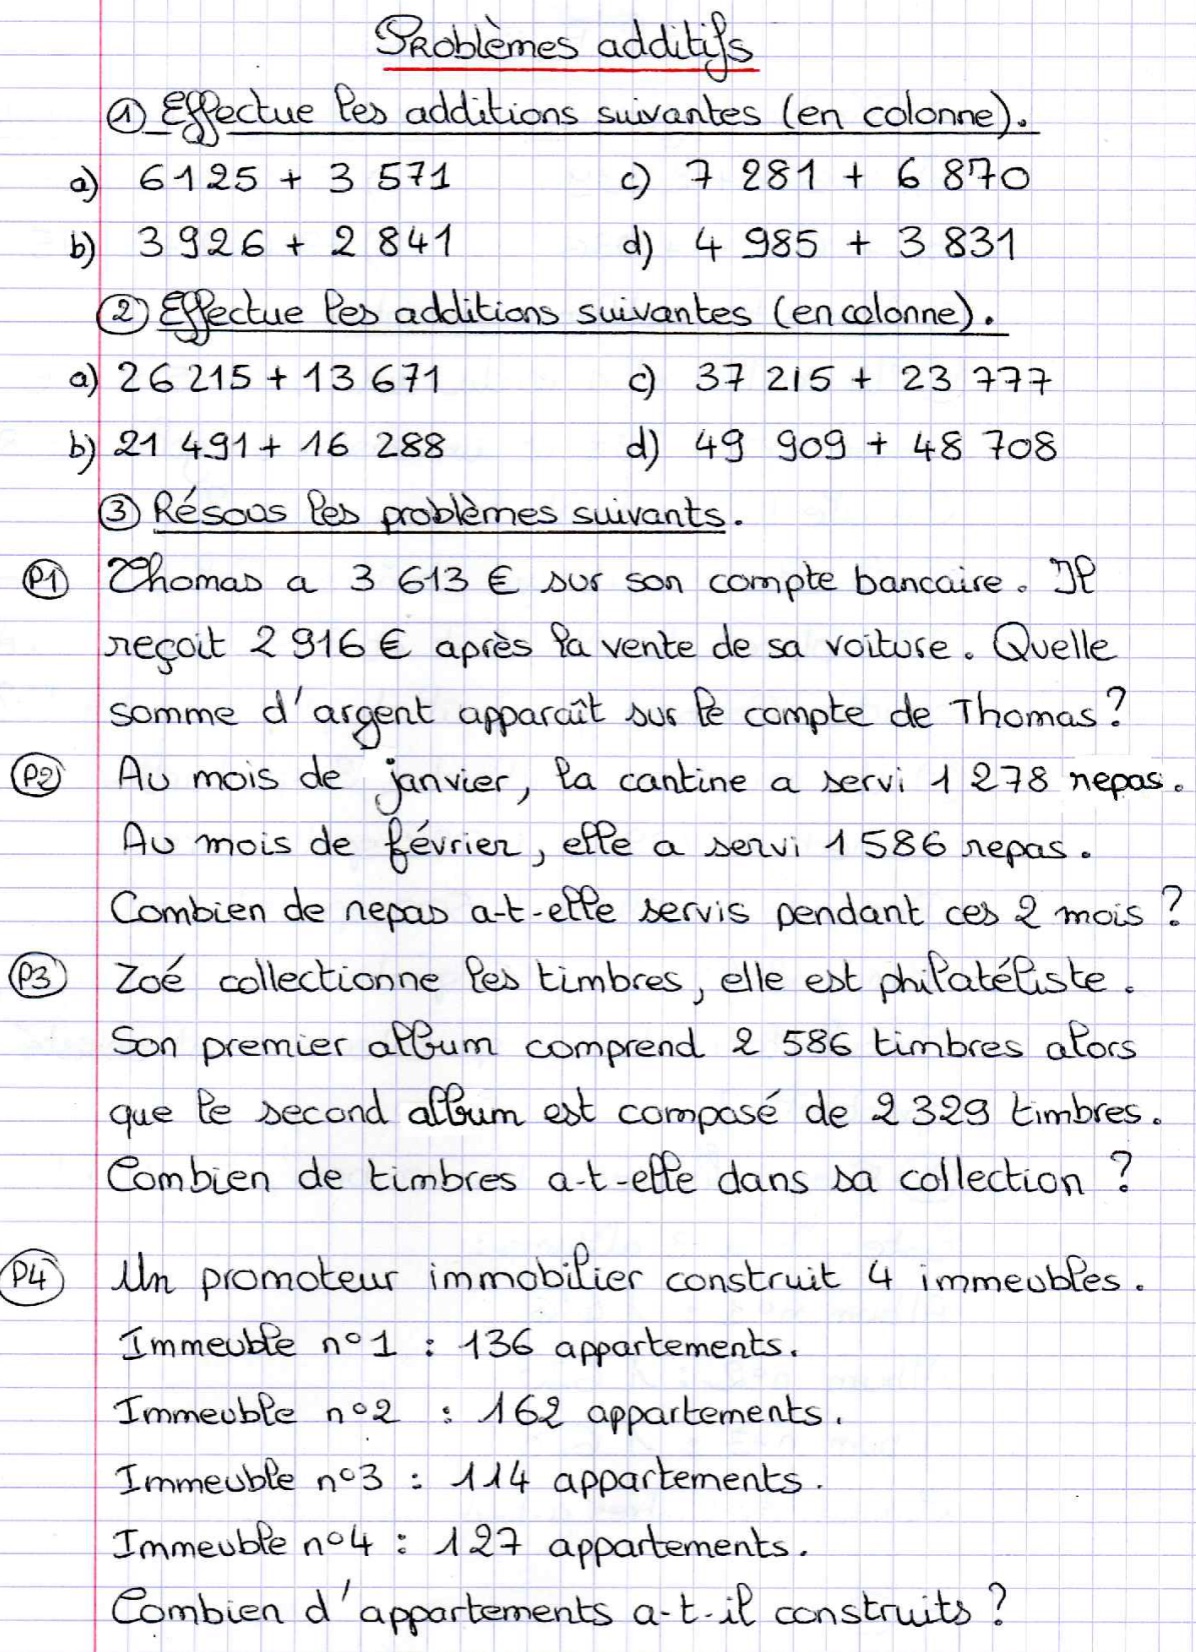 Problèmes additifs
① Effectue les additions suivantes (en colonne).
a) 6125 + 3 571 c) 7 281 + 6 870
b) 3926 + 2 841 d) 4 985 + 3 831
② Effectue les additions suivantes (en colonne).
a) 26 215 + 13 671 c) 37 215 + 23 777
b) 21 491 + 16 288 d) 49 909 + 48 708
③ Résous les problèmes suivants.
P1 Thomas a 3 613 € sur son compte bancaire. Il
reçoit 2 916 € après la vente de sa voiture. Quelle
somme d'argent apparaît sur le compte de Thomas ?
P2 Au mois de janvier, la cantine a servi 1 278 repas.
Au mois de février, elle a servi 1 586 repas.
Combien de repas a-t-elle servis pendant ces 2 mois ?
P3 Zoé collectionne les timbres, elle est philatéliste.
Son premier album comprend 2 586 timbres alors
que le second album est composé de 2 329 timbres.
Combien de timbres a-t-elle dans sa collection ?
P4 Un promoteur immobilier construit 4 immeubles.
Immeuble n°1 : 136 appartements.
Immeuble n°2 : 162 appartements.
Immeuble n°3 : 114 appartements.
Immeuble n°4 : 127 appartements.
Combien d'appartements a-t-il construits ?